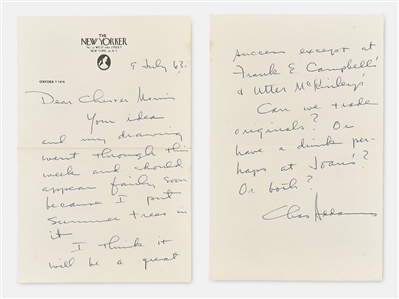 THE
NEW YORKER
No. 25 WEST 43RD STREET
NEW YORK, N.Y.
OXFORD
9 July 63.
Dear Chester
Your idea
and my drawing
went through this
week and should
appear fairly soon
because I put
summer trees in
it
I think it
will be a great
success except at
Frank E. Campbell's
& Utter McKinley's
Can we trade
originals? Or
have a drink per-
haps at Joan's?
Or both?
Chas Addams